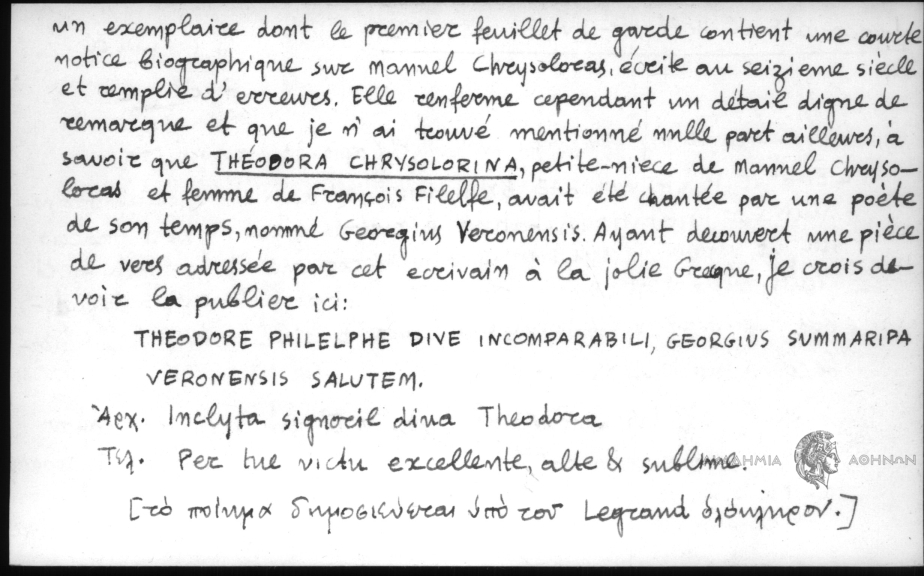 un exemplaire dont le premier feuillet de garde contient une courte
notice biographique sur Manuel Chrysoloras, écrite au seizieme siècle
et remplie d'erreurs. Elle renferme cependant un détail digne de
remarque et que je n'ai trouvé mentionné nulle part ailleurs, à
savoir que THÉODORA CHRYSOLORINA, petite-niece de Manuel Chryso-
loras et femme de François Filelfe, avait été chantée par une poète
de son temps, nommé Georgius Veronensis. Ayant decouvert une pièce
de vers adressée par cet ecrivain à la jolie Grecque, je crois de-
voir la publier ici:
THEODORE PHILELPHE DIVE INCOMPARABILI, GEORGIUS SUMMARIPA
VERONENSIS SALUTEM.
Ἀρχ. Inclyta signoril diva Theodora
Τελ. Per tue virtu excellente, alte & sublime.
ΑΚΑΔΗΜΙΑ ΑΘΗΝΩΝ
[τὸ ποίημα δημοσιεύεται ὑπὸ τοῦ Legrand ὁλόκληρον.]